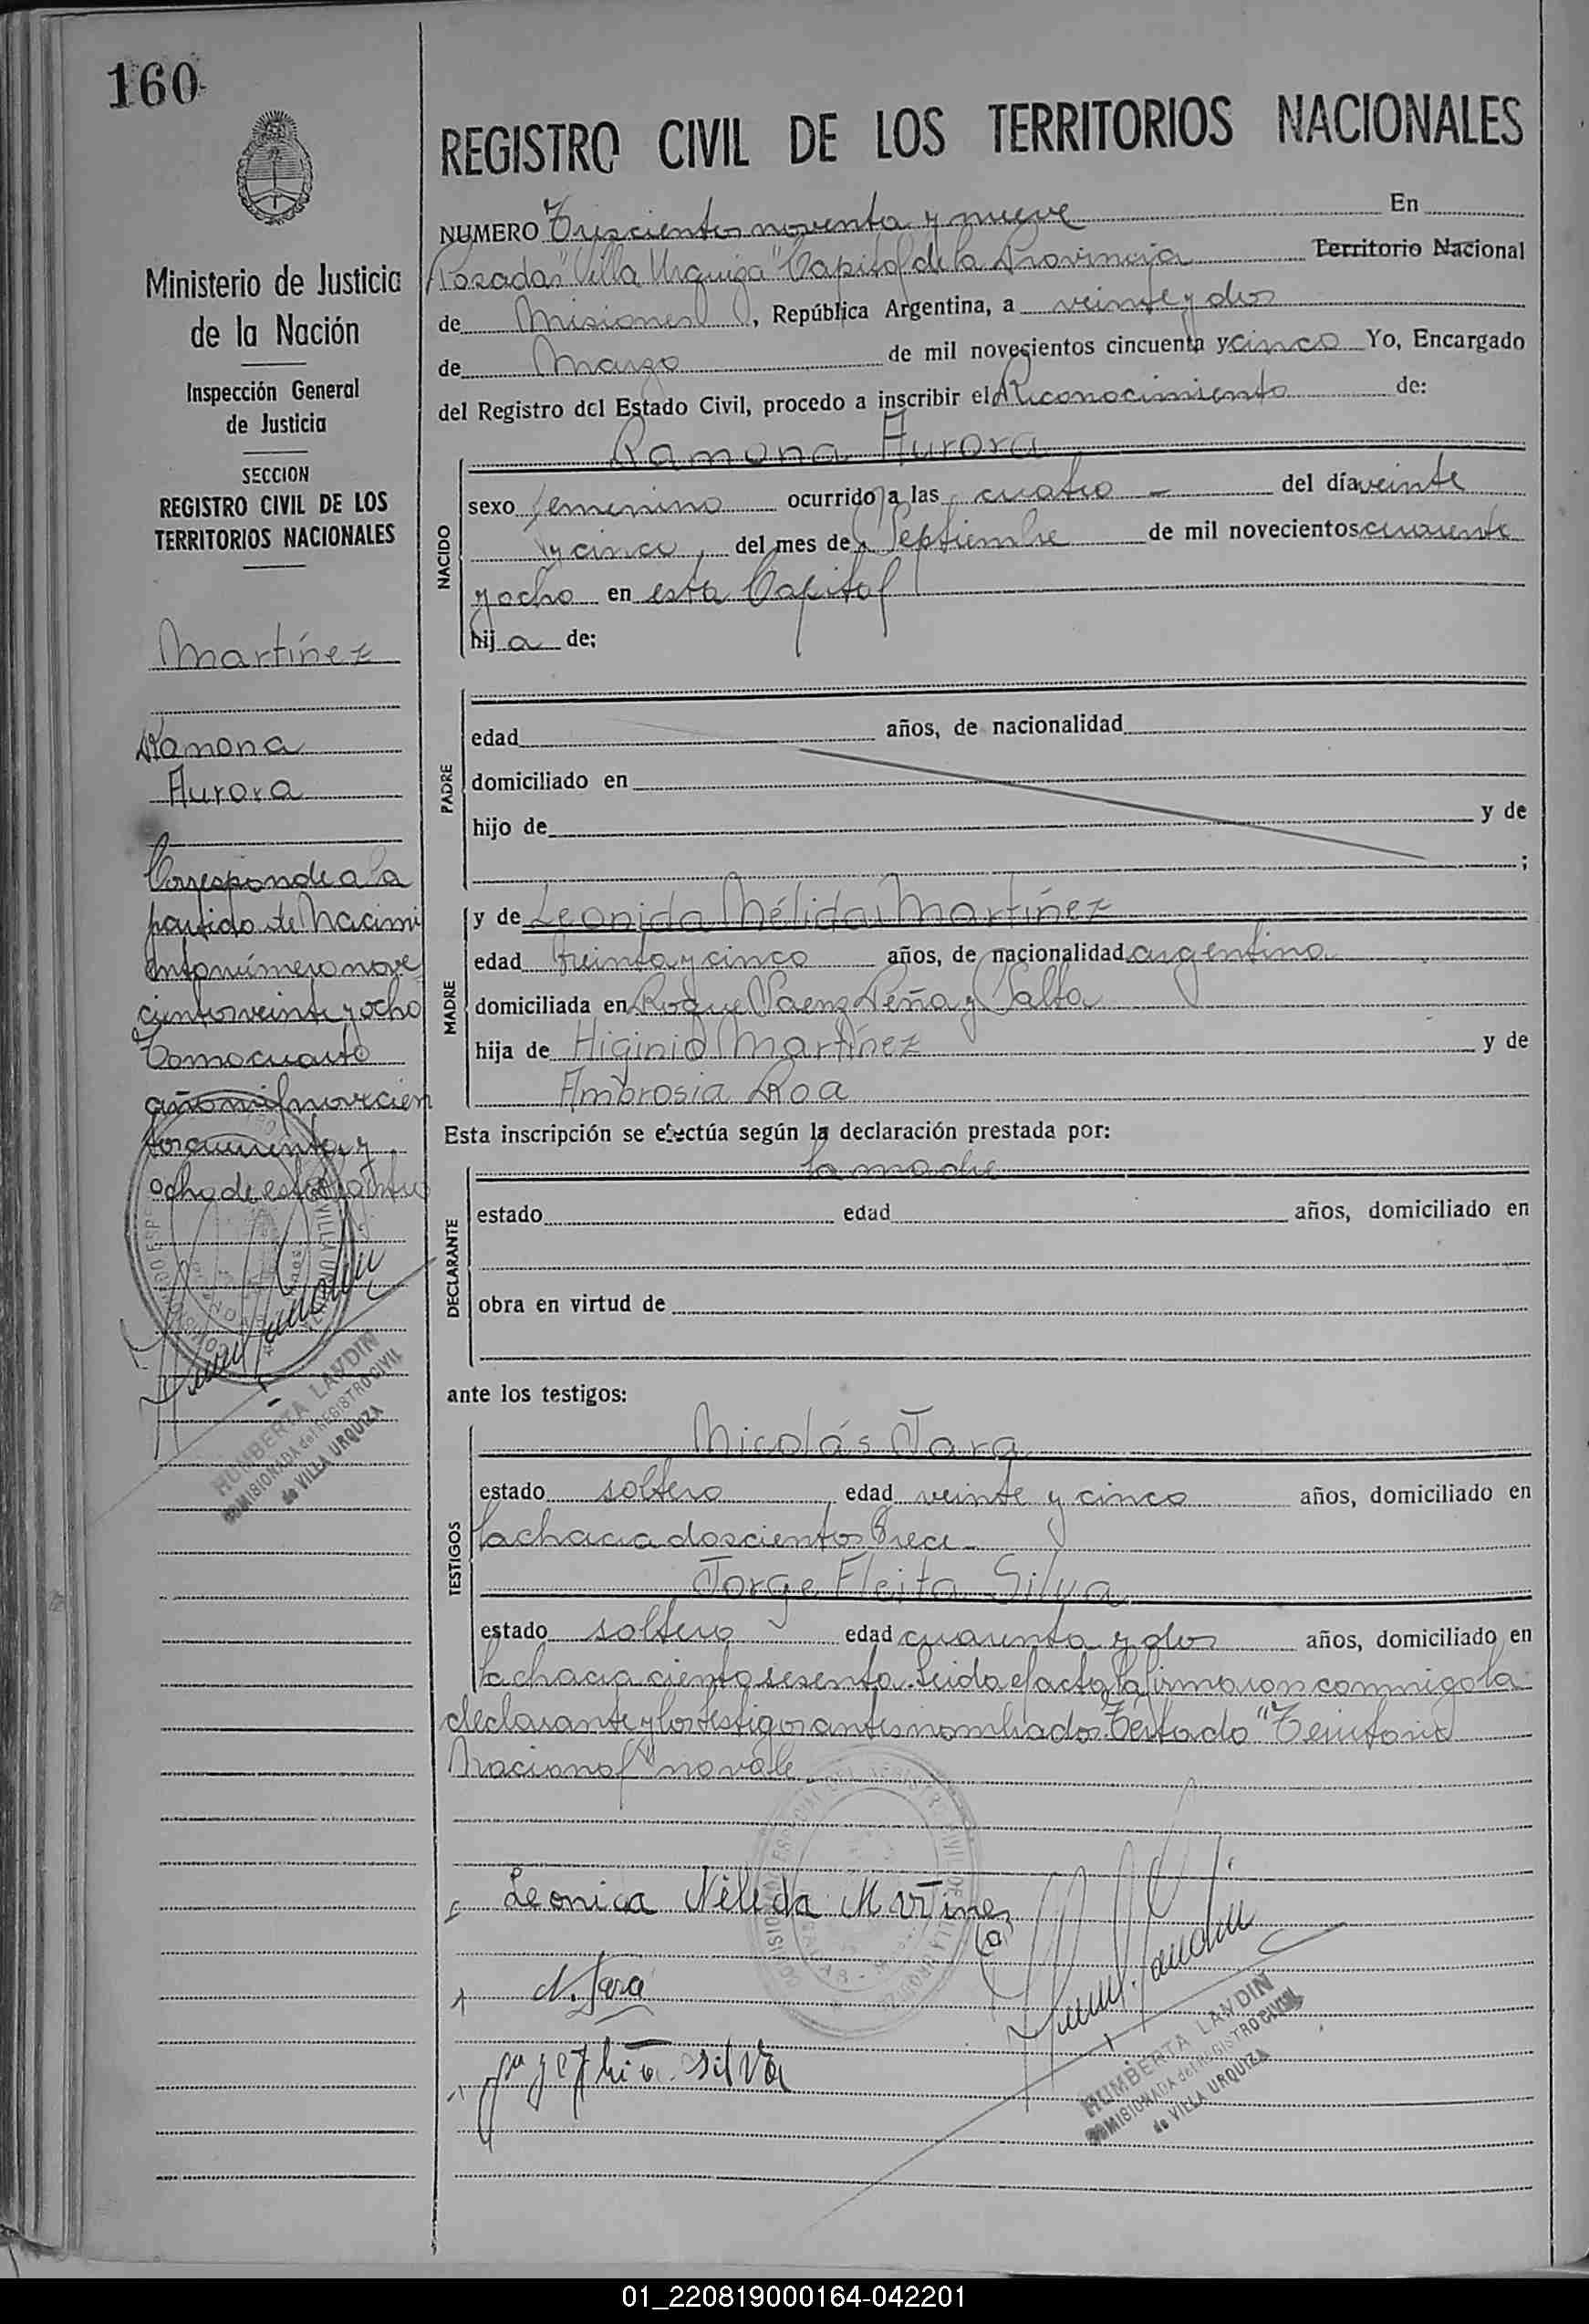 160
Ministerio de Justicia
de la Nación
Inspección General
de Justicia
SECCION
REGISTRO CIVIL DE LOS
TERRITORIOS NACIONALES
Martínez
Ramona
Aurora
Corresponde a la
partida de Nacimi
ento número nove
cientos veinte y ocho
Tomo cuarto
año mil novecien
tos cuarenta y
ocho de esta
HUMBERTA LANDIN
COMISIONADA del REGISTRO CIVIL
de VILLA URQUIZA
REGISTRO CIVIL DE LOS TERRITORIOS NACIONALES
NUMERO Trescientos noventa y nueve En
Posadas "Villa Urquiza" Capital de la Provincia Territorio Nacional
de Misiones, República Argentina, a veinte y dos
de Marzo de mil novecientos cincuenta y cinco Yo, Encargado
del Registro del Estado Civil, procedo a inscribir el Reconocimiento de:
Ramona Aurora
NACIDO
sexo femenino ocurrido a las cuatro - del día veinte
y cinco, del mes de Septiembre de mil novecientos cuarenta
y ocho en esta Capital
hij a de:
PADRE
edad años, de nacionalidad
domiciliado en
hijo de y de
;
MADRE
y de Leonida Nélida Martínez
edad treinta y cinco años, de nacionalidad argentina
domiciliada en Roque Saenz Peña y Salta
hija de Higinio Martínez y de
Ambrosia Roa
Esta inscripción se efectúa según la declaración prestada por:
la madre
DECLARANTE
estado edad años, domiciliado en
obra en virtud de
ante los testigos:
TESTIGOS
Nicolás Jara
estado soltero edad veinte y cinco años, domiciliado en
la chacra doscientos trece-
Jorge Fleita Silva
estado soltero edad cuarenta y dos años, domiciliado en
la chacra ciento sesenta. Leida el acta, la firmaron conmigo la
declarante y los testigos antes nombrados. Testado "Territorio
Nacional" no vale.
Leonida Nélida Martinez
N. Jara
Silva
HUMBERTA LANDIN
COMISIONADA del REGISTRO CIVIL
de VILLA URQUIZA
01_220819000164-042201